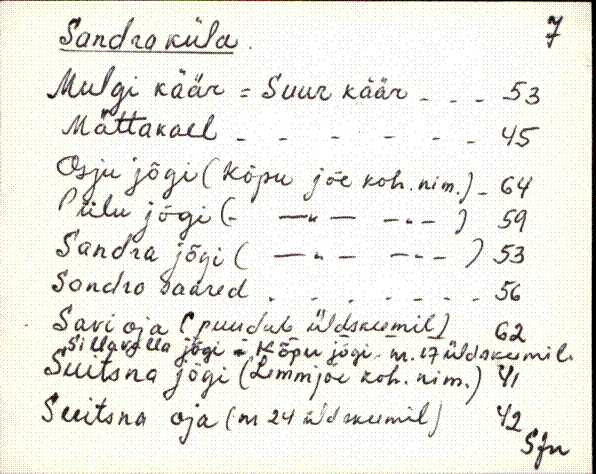 Sandra küla. 7
Mulgi käär = Suur käär - - - 53
Mättakael - - - - - - 45
Osju jõgi (Kõpu jõe koh. nim.) - 64
Piilu jõgi (- —"— -"- ) 59
Sandra jõgi ( —"— -"- ) 53
Sondro saared . - - - - - - 56
Savi oja (puudub üldskeemil) 62
Sillavalla jõgi = Kõpu jõgi - nr. 17 üldskeemil.
Suitsna jõgi (Lemmjõe koh. nim.) 41
Suitsna oja (nr 24 üldskeemil) 42